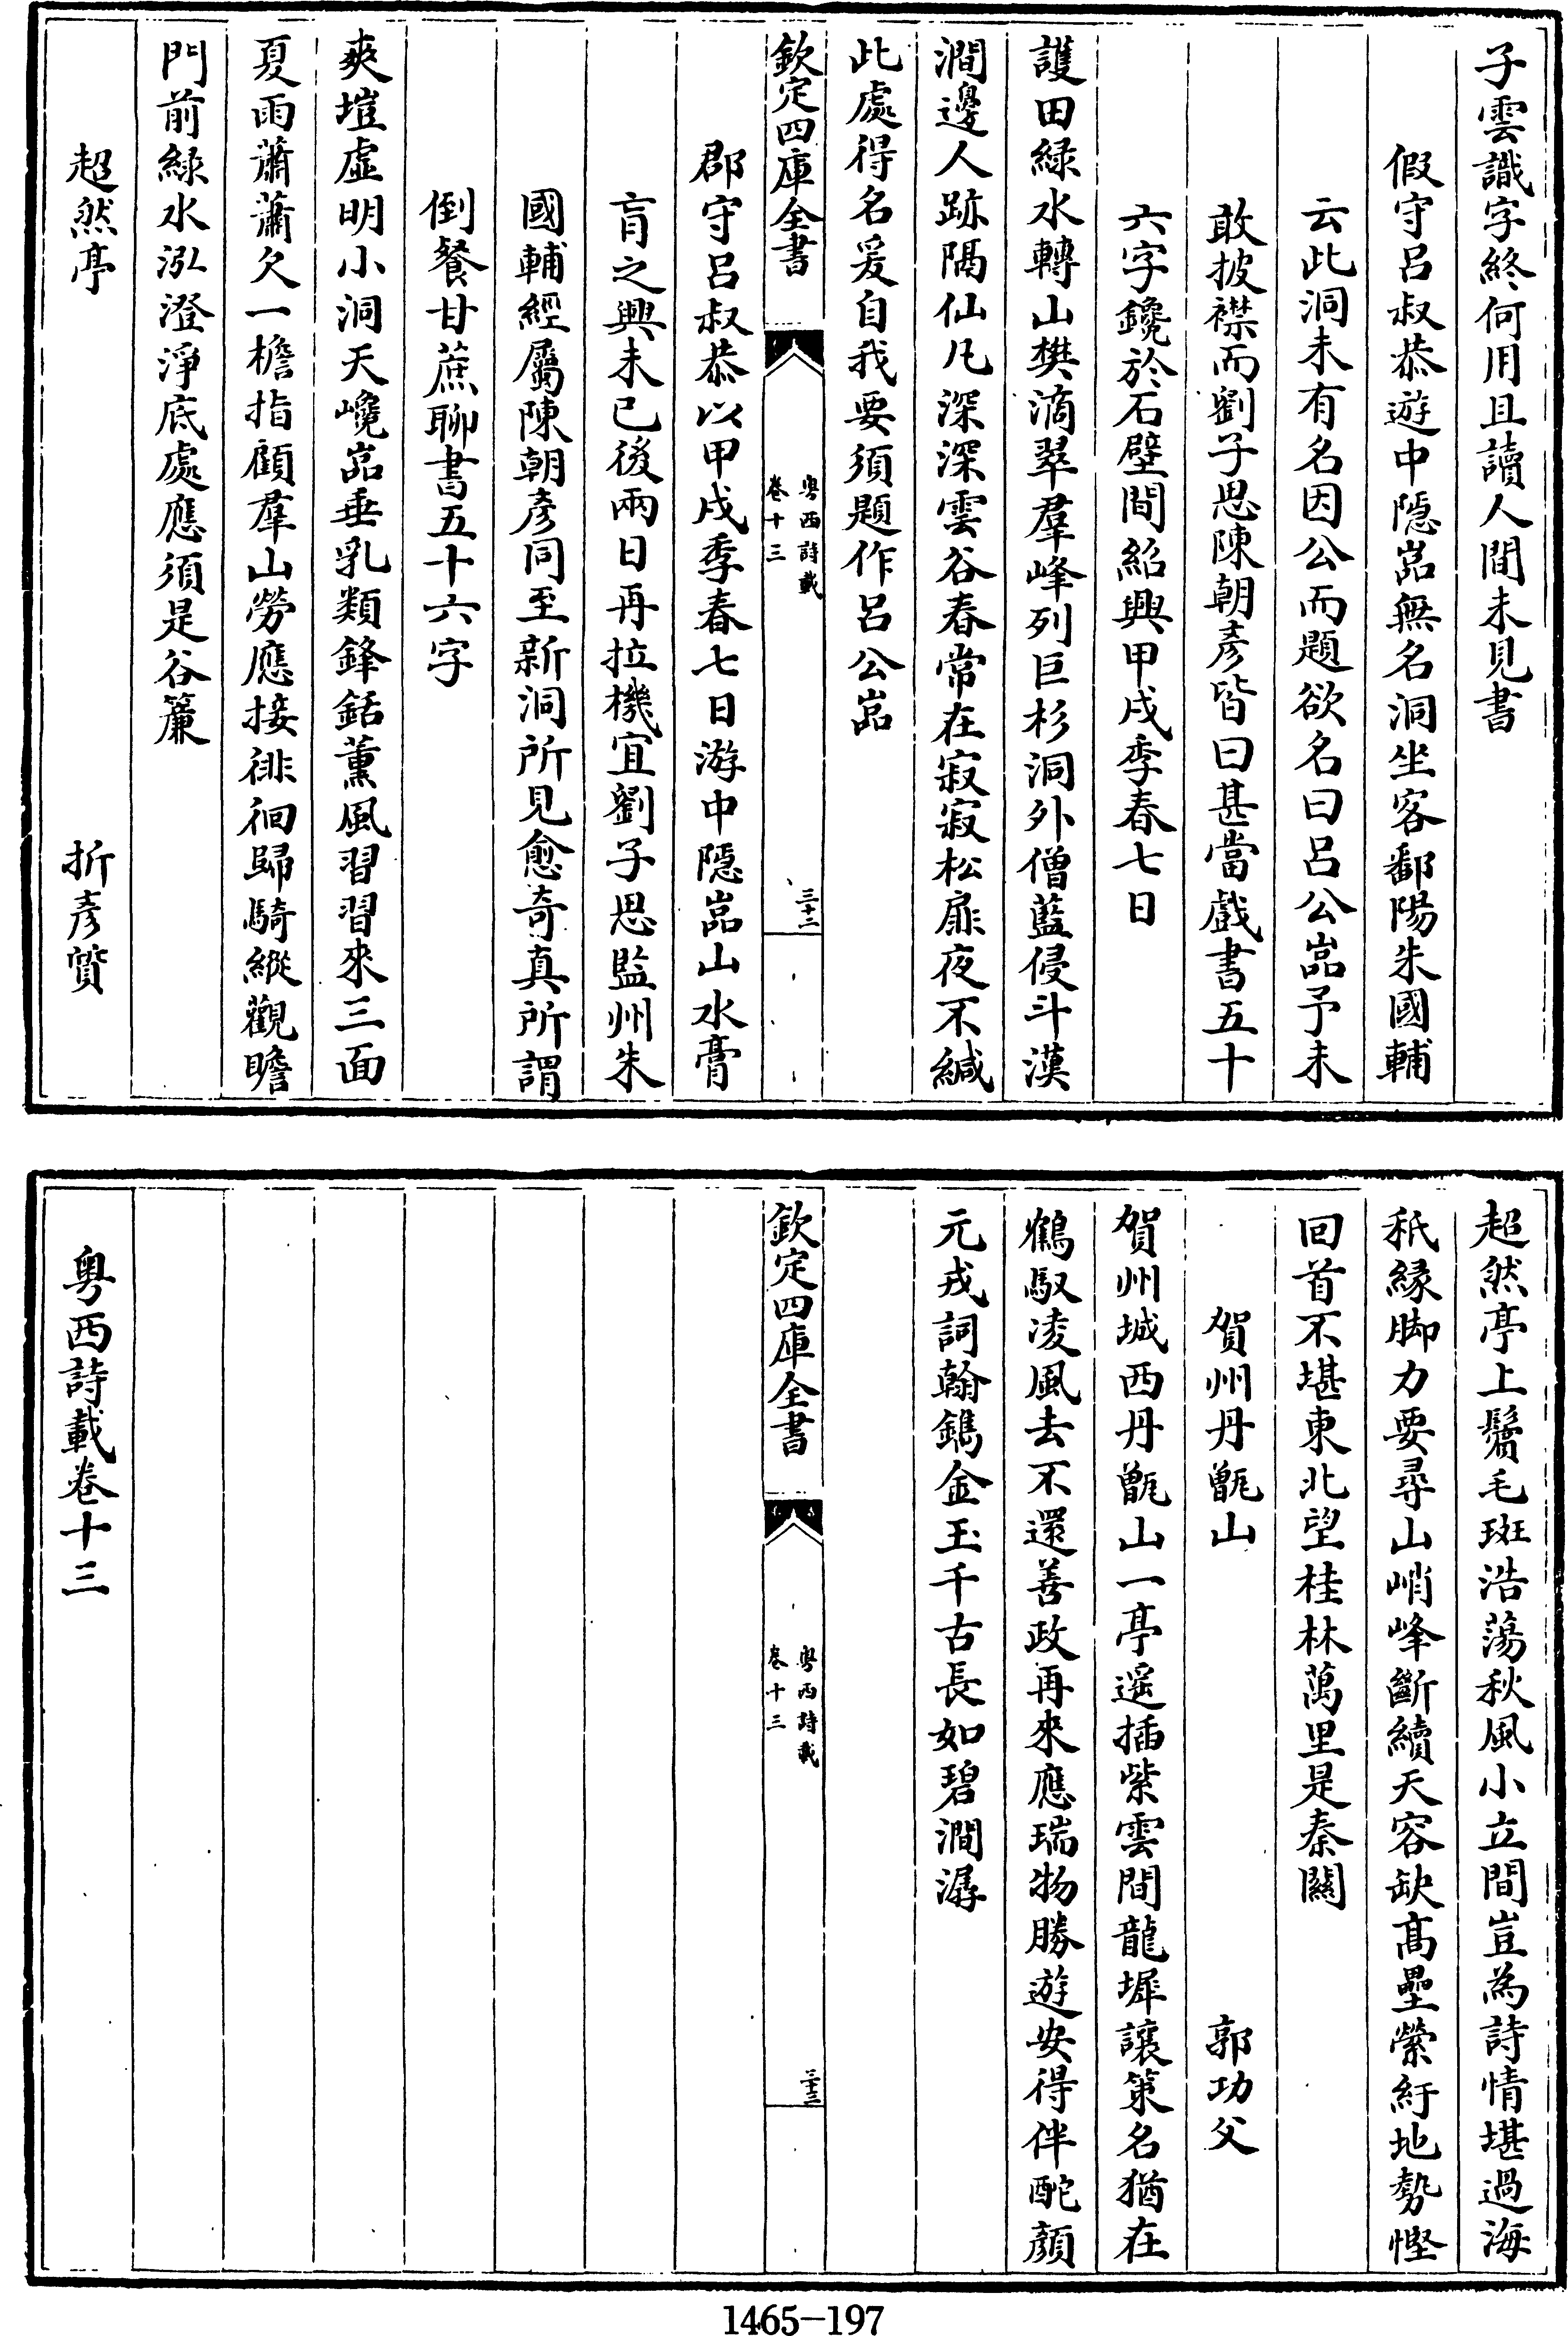 子雲識字終何用且讀人間未見書
假守呂叔恭遊中隠嵓無名洞坐客鄱陽朱國輔
云此洞未有名因公而題欲名曰呂公嵓予未
敢披襟而劉子思陳朝彥皆曰甚當戲書五十
六字鑱於石壁間紹興甲戌季春七日
護田緑水轉山樊滴翠羣峰列巨杉洞外僧藍侵斗漢
澗邊人跡隔仙凡深深雲谷春常在寂寂松扉夜不緘
此處得名爰自我要須題作呂公嵓
欽定四庫全書
粤西詩載
卷十三
三十二
郡守呂叔恭以甲戌季春七日游中隠嵓山水膏
肓之興未已後兩日再拉機宜劉子思監州朱
國輔經屬陳朝彥同至新洞所見愈竒真所謂
倒餐甘蔗聊書五十六字
爽塏虛明小洞天巉嵓垂乳類鋒銛薰風習習來三面
夏雨蕭蕭欠一檐指顧羣山勞應接徘徊歸騎縱觀瞻
門前緑水泓澄淨底處應須是谷簾
超然亭
折彥質
超然亭上鬢毛斑浩蕩秋風小立間豈為詩情堪過海
秖縁脚力要尋山峭峰斷續天容缺髙壘縈紆地勢慳
回首不堪東北望桂林萬里是秦關
賀州丹甑山
郭功父
賀州城西丹甑山一亭遥插紫雲間龍墀讓第名猶在
鶴馭凌風去不還善政再來應瑞物勝遊安得伴酡顔
元戎詞翰鐫金玉千古長如碧澗潺
欽定四庫全書
粤西詩載
卷十三
三十三
粤西詩載卷十三
1465-197